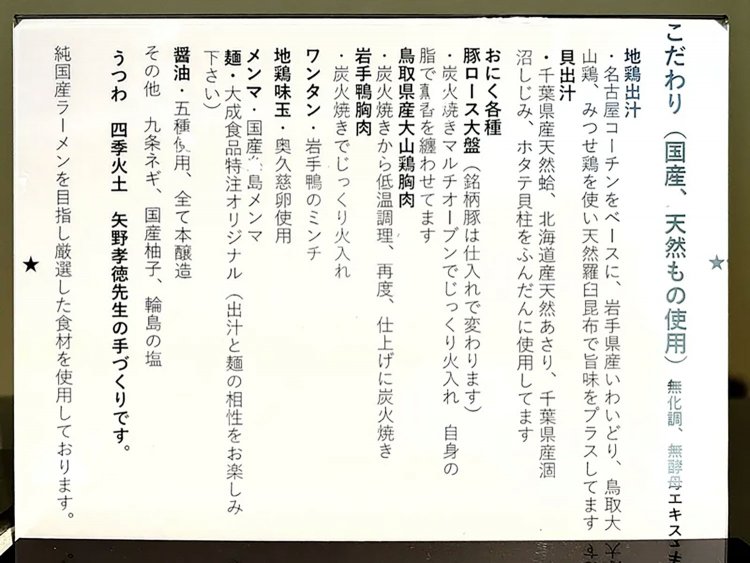 こだわり（国産、天然もの使用）無化調、無酵母エキス
地鶏出汁
・名古屋コーチンをベースに、岩手県産いわいどり、鳥取大
山鶏、みつせ鶏を使い天然羅臼昆布で旨味をプラスしてます
貝出汁
・千葉県産天然蛤、北海道産天然あさり、千葉県産涸
沼しじみ、ホタテ貝柱をふんだんに使用してます
おにく各種
豚ロース大盤（銘柄豚は仕入れで変わります）
・炭火焼きマルチオーブンでじっくり火入れ　自身の
脂で薫香を纏わせてます
鳥取県産大山鶏胸肉
・炭火焼きから低温調理、再度、仕上げに炭火焼き
岩手鴨胸肉
・炭火焼きでじっくり火入れ
ワンタン・岩手鴨のミンチ
地鶏味玉・奥久慈卵使用
メンマ・国産島メンマ
麺・大成食品特注オリジナル（出汁と麺の相性をお楽しみ
下さい）
醤油・五種使用、全て本醸造
その他　九条ネギ、国産柚子、輪島の塩
うつわ　四季火土　矢野孝徳先生の手づくりです。
純国産ラーメンを目指し厳選した食材を使用しております。